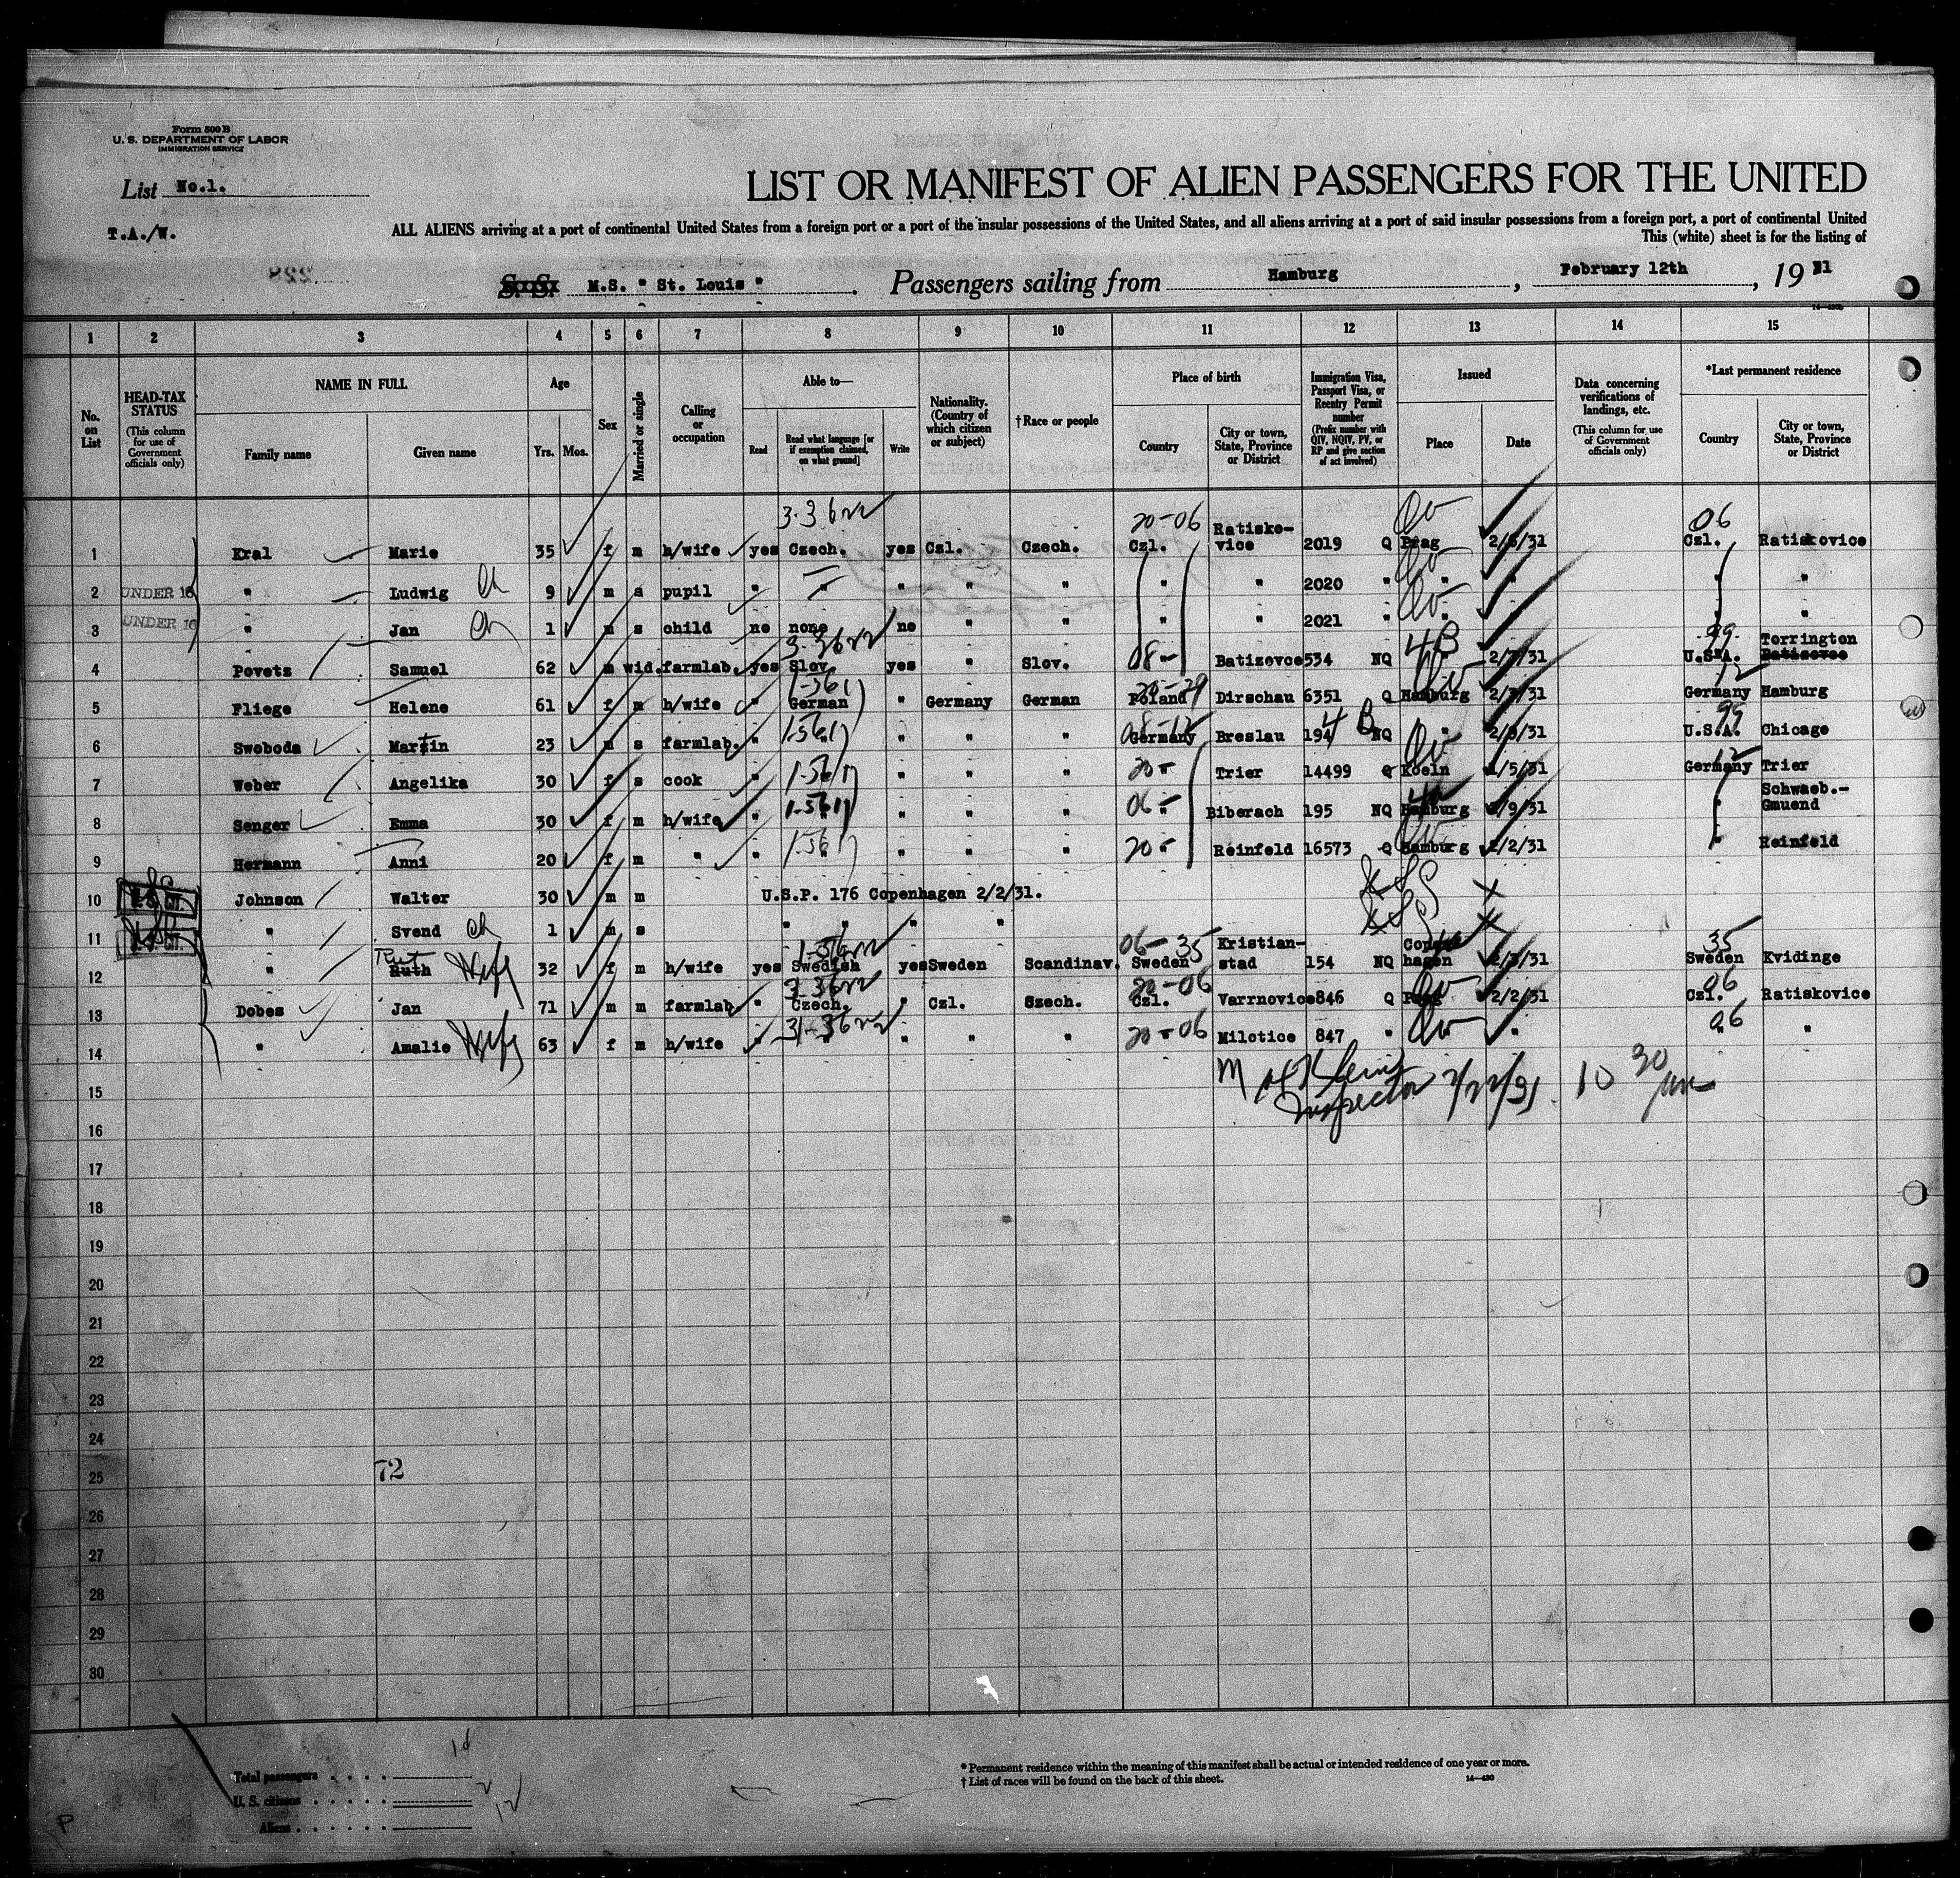 Form 500 B
U. S. DEPARTMENT OF LABOR
IMMIGRATION SERVICE
List No.1.
T.A./W.
LIST OR MANIFEST OF ALIEN PASSENGERS FOR THE UNITED
ALL ALIENS arriving at a port of continental United States from a foreign port or a port of the insular possessions of the United States, and all aliens arriving at a port of said insular possessions from a foreign port, a port of continental United
This (white) sheet is for the listing of
S. S. M.S. " St. Louis " . Passengers sailing from Hamburg , February 12th , 19 31
1 2 3 4 5 6 7 8 9 10 11 12 13 14 15
No. on List
HEAD-TAX STATUS (This column for use of Government officials only)
NAME IN FULL Family name Given name
Age Yrs. Mos.
Sex
Married or single
Calling or occupation
Able to— Read Read what language [or if exemption claimed, on what ground] Write
Nationality. (Country of which citizen or subject)
†Race or people
Place of birth Country City or town, State, Province or District
Immigration Visa, Passport Visa, or Reentry Permit number (Prefix number with QIV, NQIV, PV, or RP and give section of act involved)
Issued Place Date
Data concerning verifications of landings, etc. (This column for use of Government officials only)
*Last permanent residence Country City or town, State, Province or District
1 Kral Marie 35 f m h/wife yes Czech. yes Czl. Czech. 20-06 Czl. Ratisko-vice 2019 Q Prag 2/6/31 06 Czl. Ratiskovice
2 UNDER 16 " Ludwig Ch 9 m s pupil " " " " " " " 2020 " " " " "
3 UNDER 16 " Jan Ch 1 m s child no none no " " " " 2021 " " " " "
4 Povetz Samuel 62 m wid. farmlab. yes Slov. yes " Slov. 08 " Batizovce 534 NQ 4B 2/7/31 99 U.S.A. Torrington Batizovce
5 Fliege Helene 61 f m h/wife " German " Germany German Poland Dirschau 6351 Q Hamburg 2/3/31 Germany Hamburg
6 Swoboda Martin 23 m s farmlab. " " " " " Germany Breslau 194 4 B NQ " 2/6/31 99 U.S.A. Chicago
7 Weber Angelika 30 f s cook " " " " " 20 " Trier 14499 Q Koeln 1/5/31 12 Germany Trier
8 Senger Emma 30 f m h/wife " " " " " 06 " Biberach 195 NQ Hamburg 2/9/31 " Schwaeb.-Gmuend
9 Hermann Anni 20 f m " " " " " " 20 " Reinfeld 16573 Q Hamburg 2/2/31 " Reinfeld
10 Johnson Walter 30 m m U.S.P. 176 Copenhagen 2/2/31.
11 " Svend ch 1 m s " " " "
12 " Rut Ruth Wife 32 f m h/wife yes Swedish yes Sweden Scandinav. 06-35 Sweden Kristian-stad 154 NQ Copenhagen 2/3/31 35 Sweden Kvidinge
13 Dobes Jan 71 m m farmlab " Czech. " Czl. Szech. 20-06 Czl. Varrnovice 846 Q Prag 2/2/31 06 Czl. Ratiskovice
14 " Amalie Wife 63 f m h/wife " " " " " 20-06 " Milotice 847 " " 06 " "
15 Inspector 2/22/31. 10 30
16
17
18
19
20
21
22
23
24
25 72
26
27
28
29
30
Total passengers . . . .
U. S. citizens . . . . . 2
Aliens . . . . . . 12
* Permanent residence within the meaning of this manifest shall be actual or intended residence of one year or more.
† List of races will be found on the back of this sheet. 14—430